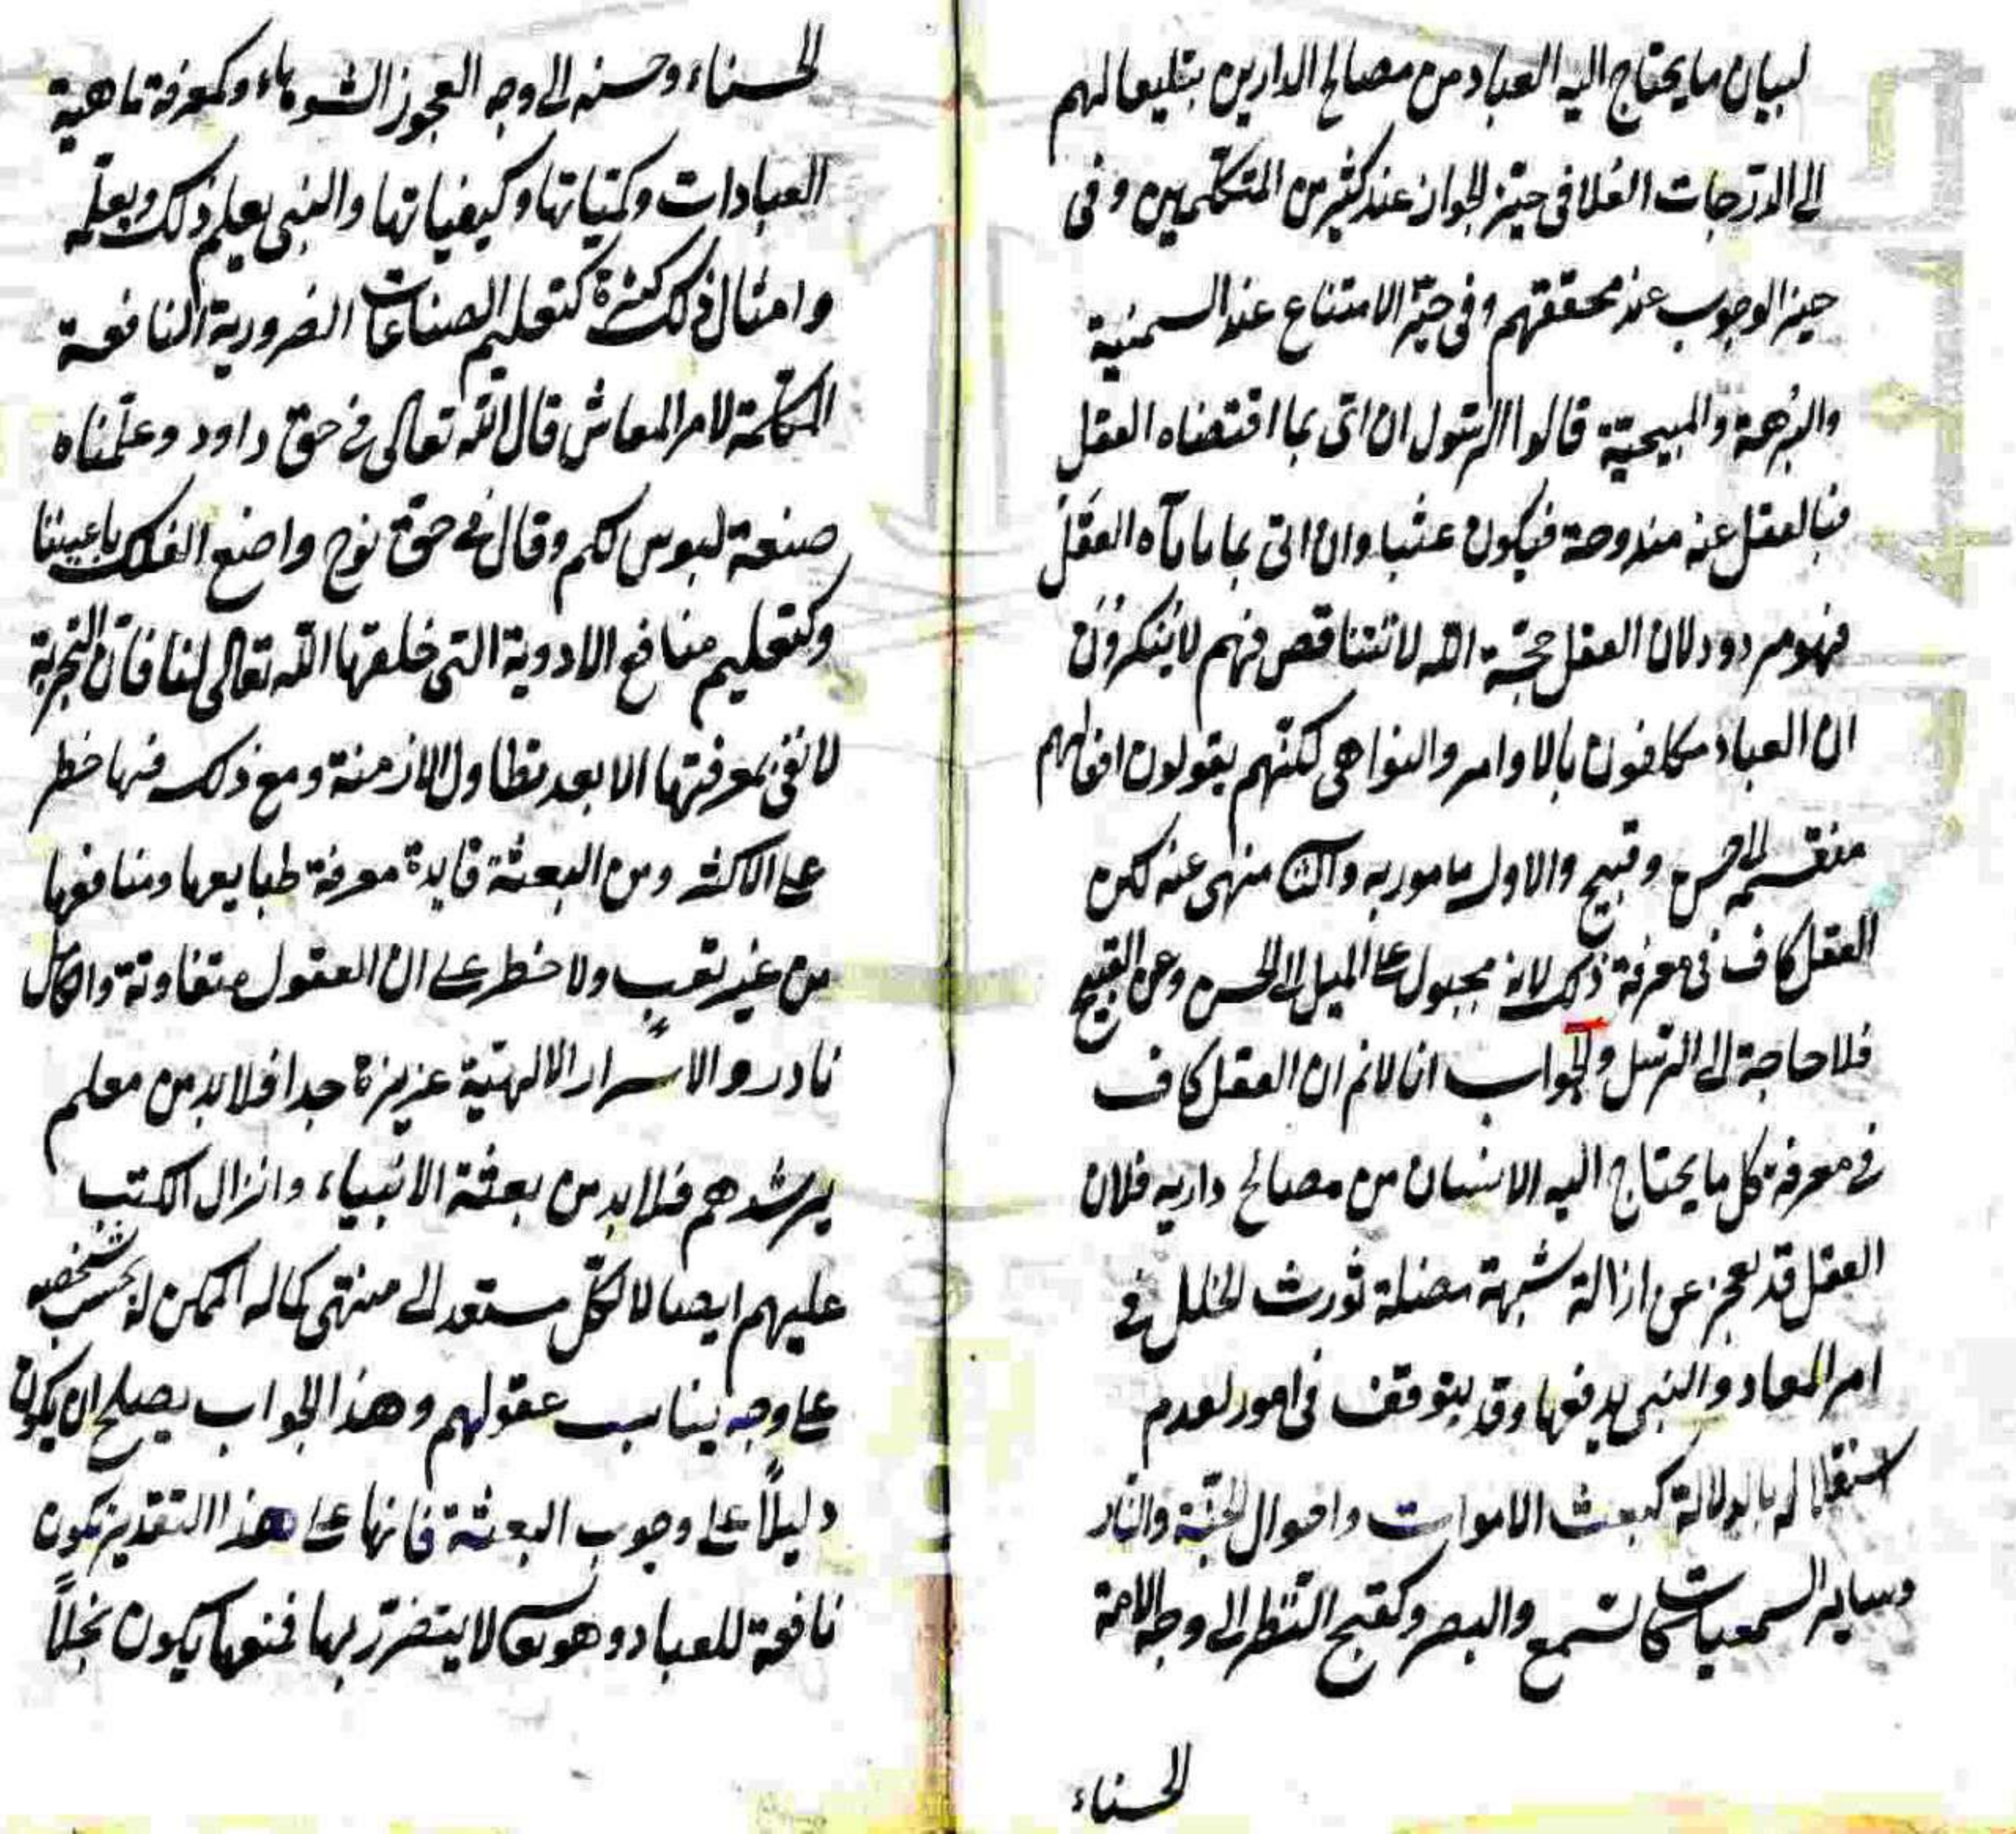 لبيان ما يحتاج اليه العباد من مصالح الدارين بتليعا لهم
الى الدّرجات العُلا في حيّز الجواز عند كثير من المتكلمين وفي
حيز الوجوب عند محققيهم وفي حيّز الامتناع عند السمنية
والبرهمة والمبيحيّة قالوا الرسول ان اتى بما اقتضاه العقل
فبالعقل عنه مندوحة فيكون عبثا وان اتى بما يأباه العقل
فهو مردود لان العقل حجّة الله لا تتناقص فهم لا ينكرون
ان العباد مكلفون بالاوامر والنواهي لكنّهم يقولون افعالهم
منقسمة الى حسن وقبيح والاول مامور به والثاني منهى عنه لكن
العقل كاف في معرفة ذلك لانه مجبول على الميل الى الحسن وعن القبيح
فلا حاجة الى الرسل والجواب انا لانم ان العقل كاف
في معرفة كل ما يحتاج اليه الانسان من مصالح داريه فلان
العقل قد يعجز عن ازالة شبهة معضلة تورث الخلل في
امر المعاد والنبى يدفعها وقد يتوقف في امور لعدم
استقلاله بالدلالة كبعث الاموات واحوال الجنّة والنار
وساير السمعيات كالسّمع والبصر وكقبح النّظر الى وجه الامة
الحسناء
الحسناء وحسنه الى وجه العجوز الشوهاء وكمعرفة ماهية
العبادات وكميّاتها وكيفياتها والنبى يعلم ذلك ويعلّمه
وامثال ذلك كثيرة كتعليم الصناعات الضرورية النافعة
المكمّلة لامر المعاش قال الله تعالى في حق داود وعلّمناه
صنعة لبوس لكم وقال في حق نوح واصنع الفلك باعيننا
وكتعليم منافع الادوية التي خلقها الله تعالى لنا فان التجربة
لا تفى بمعرفتها الا بعد تطاول الازمنة ومع ذلك فيها خطر
على الاكثر ومن البعثة فايدة معرفة طبايعها ومنافعها
من غير تعبٍ ولا خطر على ان العقول متفاوتة والكامل
نادر والاسرار الالهيّة عزيزة جدا فلا بد من معلم
يرشدهم فلا بد من بعثة الانبياء وانزال الكتب
عليهم ايصالا لكلّ مستعد الى منتهى كماله الممكن له بحسب شخصه
على وجه يناسب عقولهم وهذا الجواب يصلح ان يكون
دليلاً على وجوب البعثة فانها على هذا التقدير يكون
نافعة للعباد وهو تعالى لا يتضرّر بها فمنعها يكون بخلاً